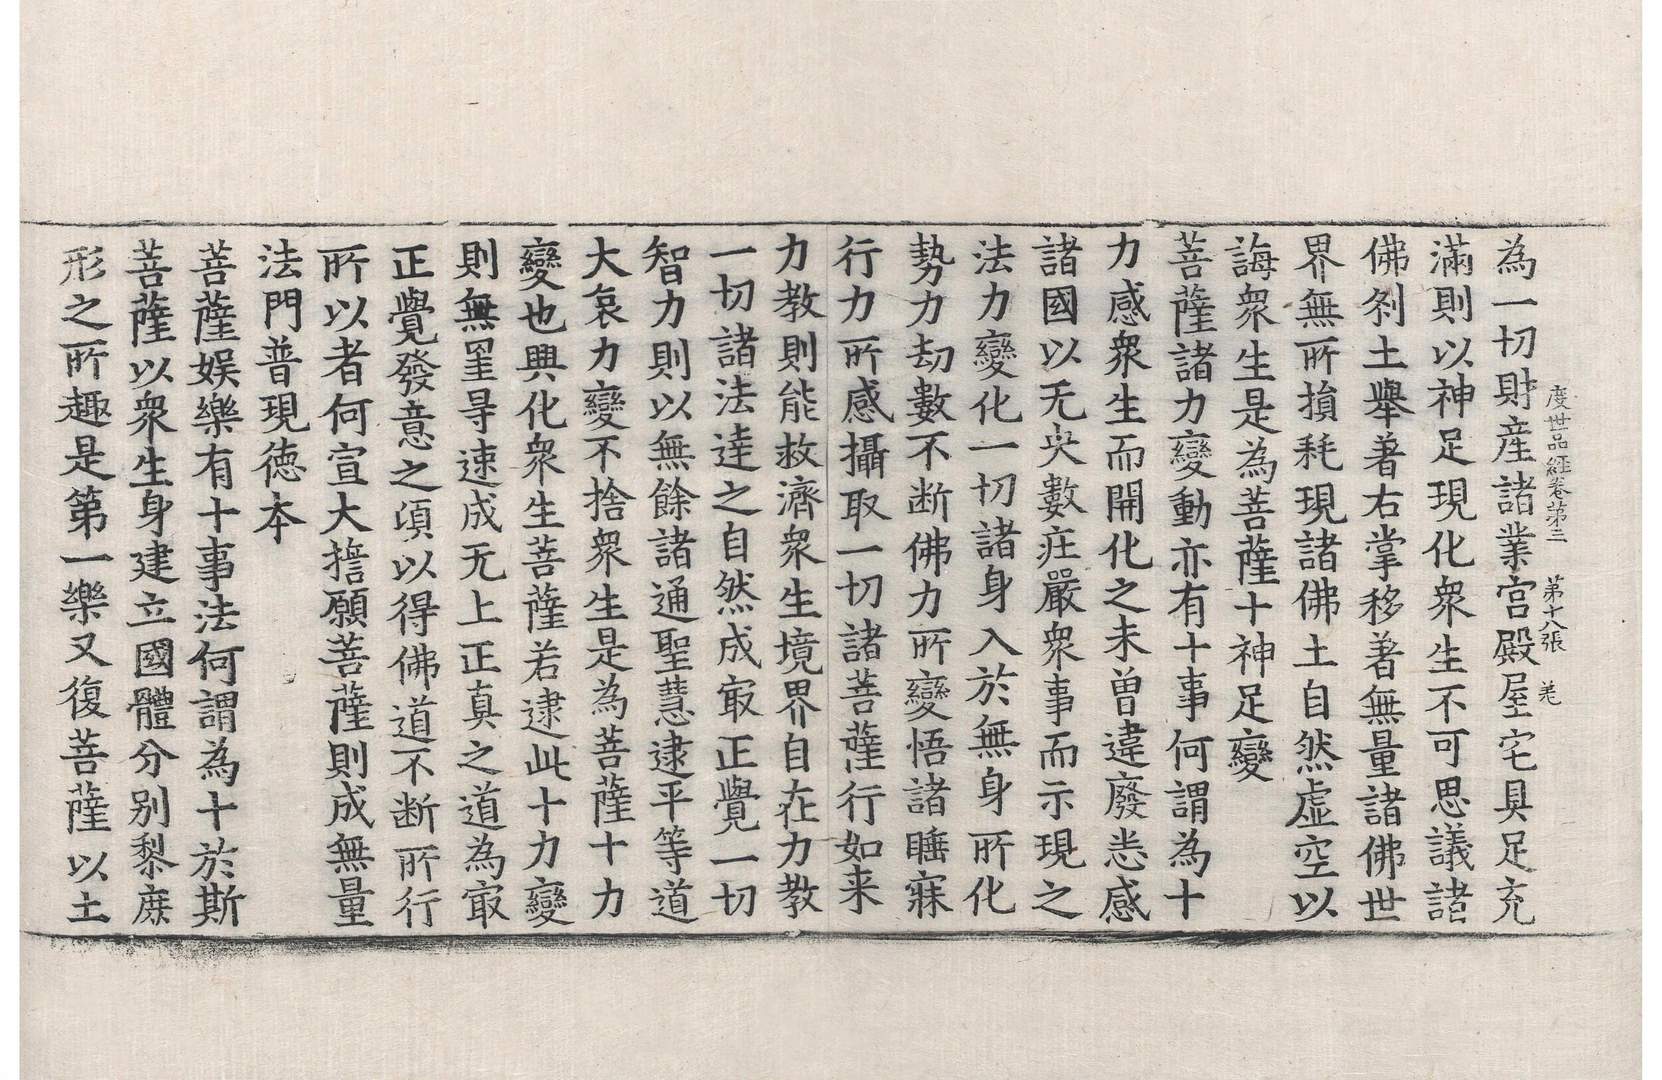 度世品經卷第三　第十八張　羌
為一切財産諸業宮殿屋宅具足充
滿則以神足現化衆生不可思議諸
佛刹土舉著右掌移著無量諸佛世
界無所損耗現諸佛土自然虛空以
誨衆生是為菩薩十神足變
菩薩諸力變動亦有十事何謂為十
力感衆生而開化之未曽違廢恙感
諸國以无央數庄嚴衆事而示現之
法力變化一切諸身入於無身所化
勢力劫數不断佛力所變悟諸睡寐
行力所感攝取一切諸菩薩行如来
力教則能救濟衆生境界自在力教
一切諸法達之自然成㝡正覺一切
智力則以無餘諸通聖慧逮平等道
大哀力變不捨衆生是為菩薩十力
變也興化衆生菩薩若逮此十力變
則無罣㝵速成无上正真之道為㝡
正覺發意之頃以得佛道不断所行
所以者何宣大擔願菩薩則成無量
法門普現徳本
菩薩娛樂有十事法何謂為十於斯
菩薩以衆生身建立國體分别黎庶
形之所趣是第一樂又復菩薩以土